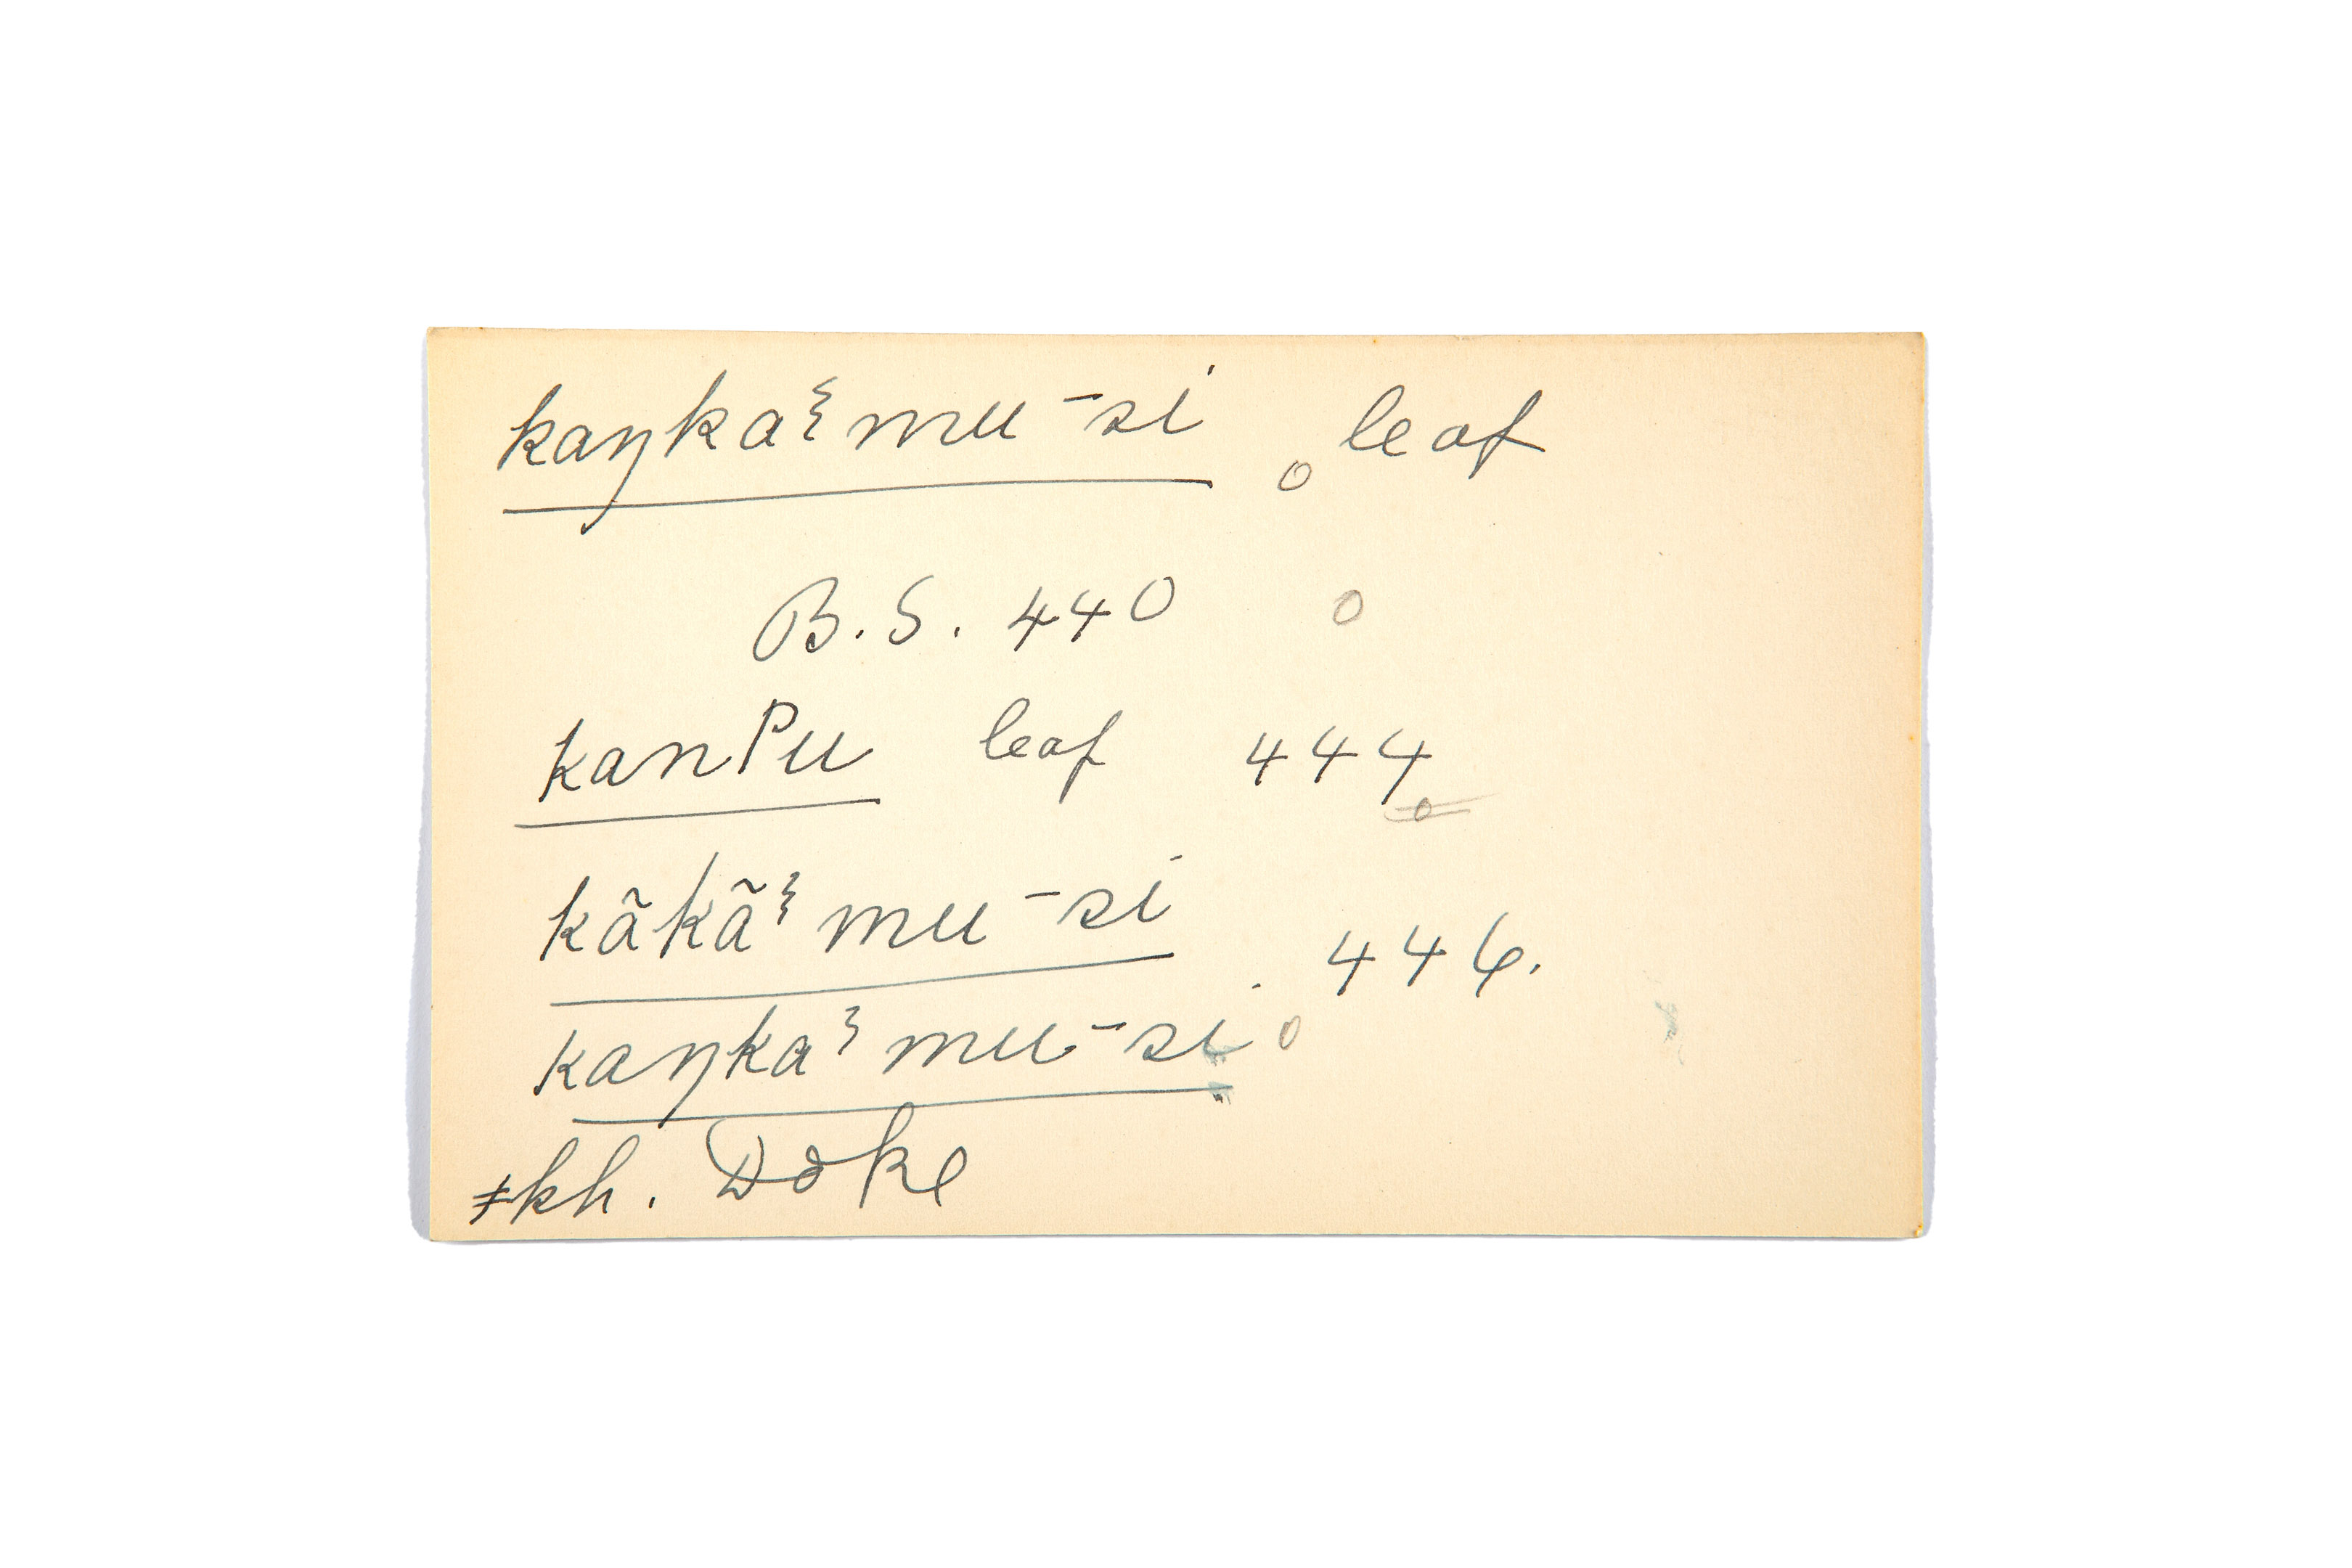 kaŋkaꜫ mu-si leaf
B.S. 440
kanPu leaf 444
kãkãꜫ mu-si
446.
kaŋkaꜫ mu-si
ǂkh. Doke